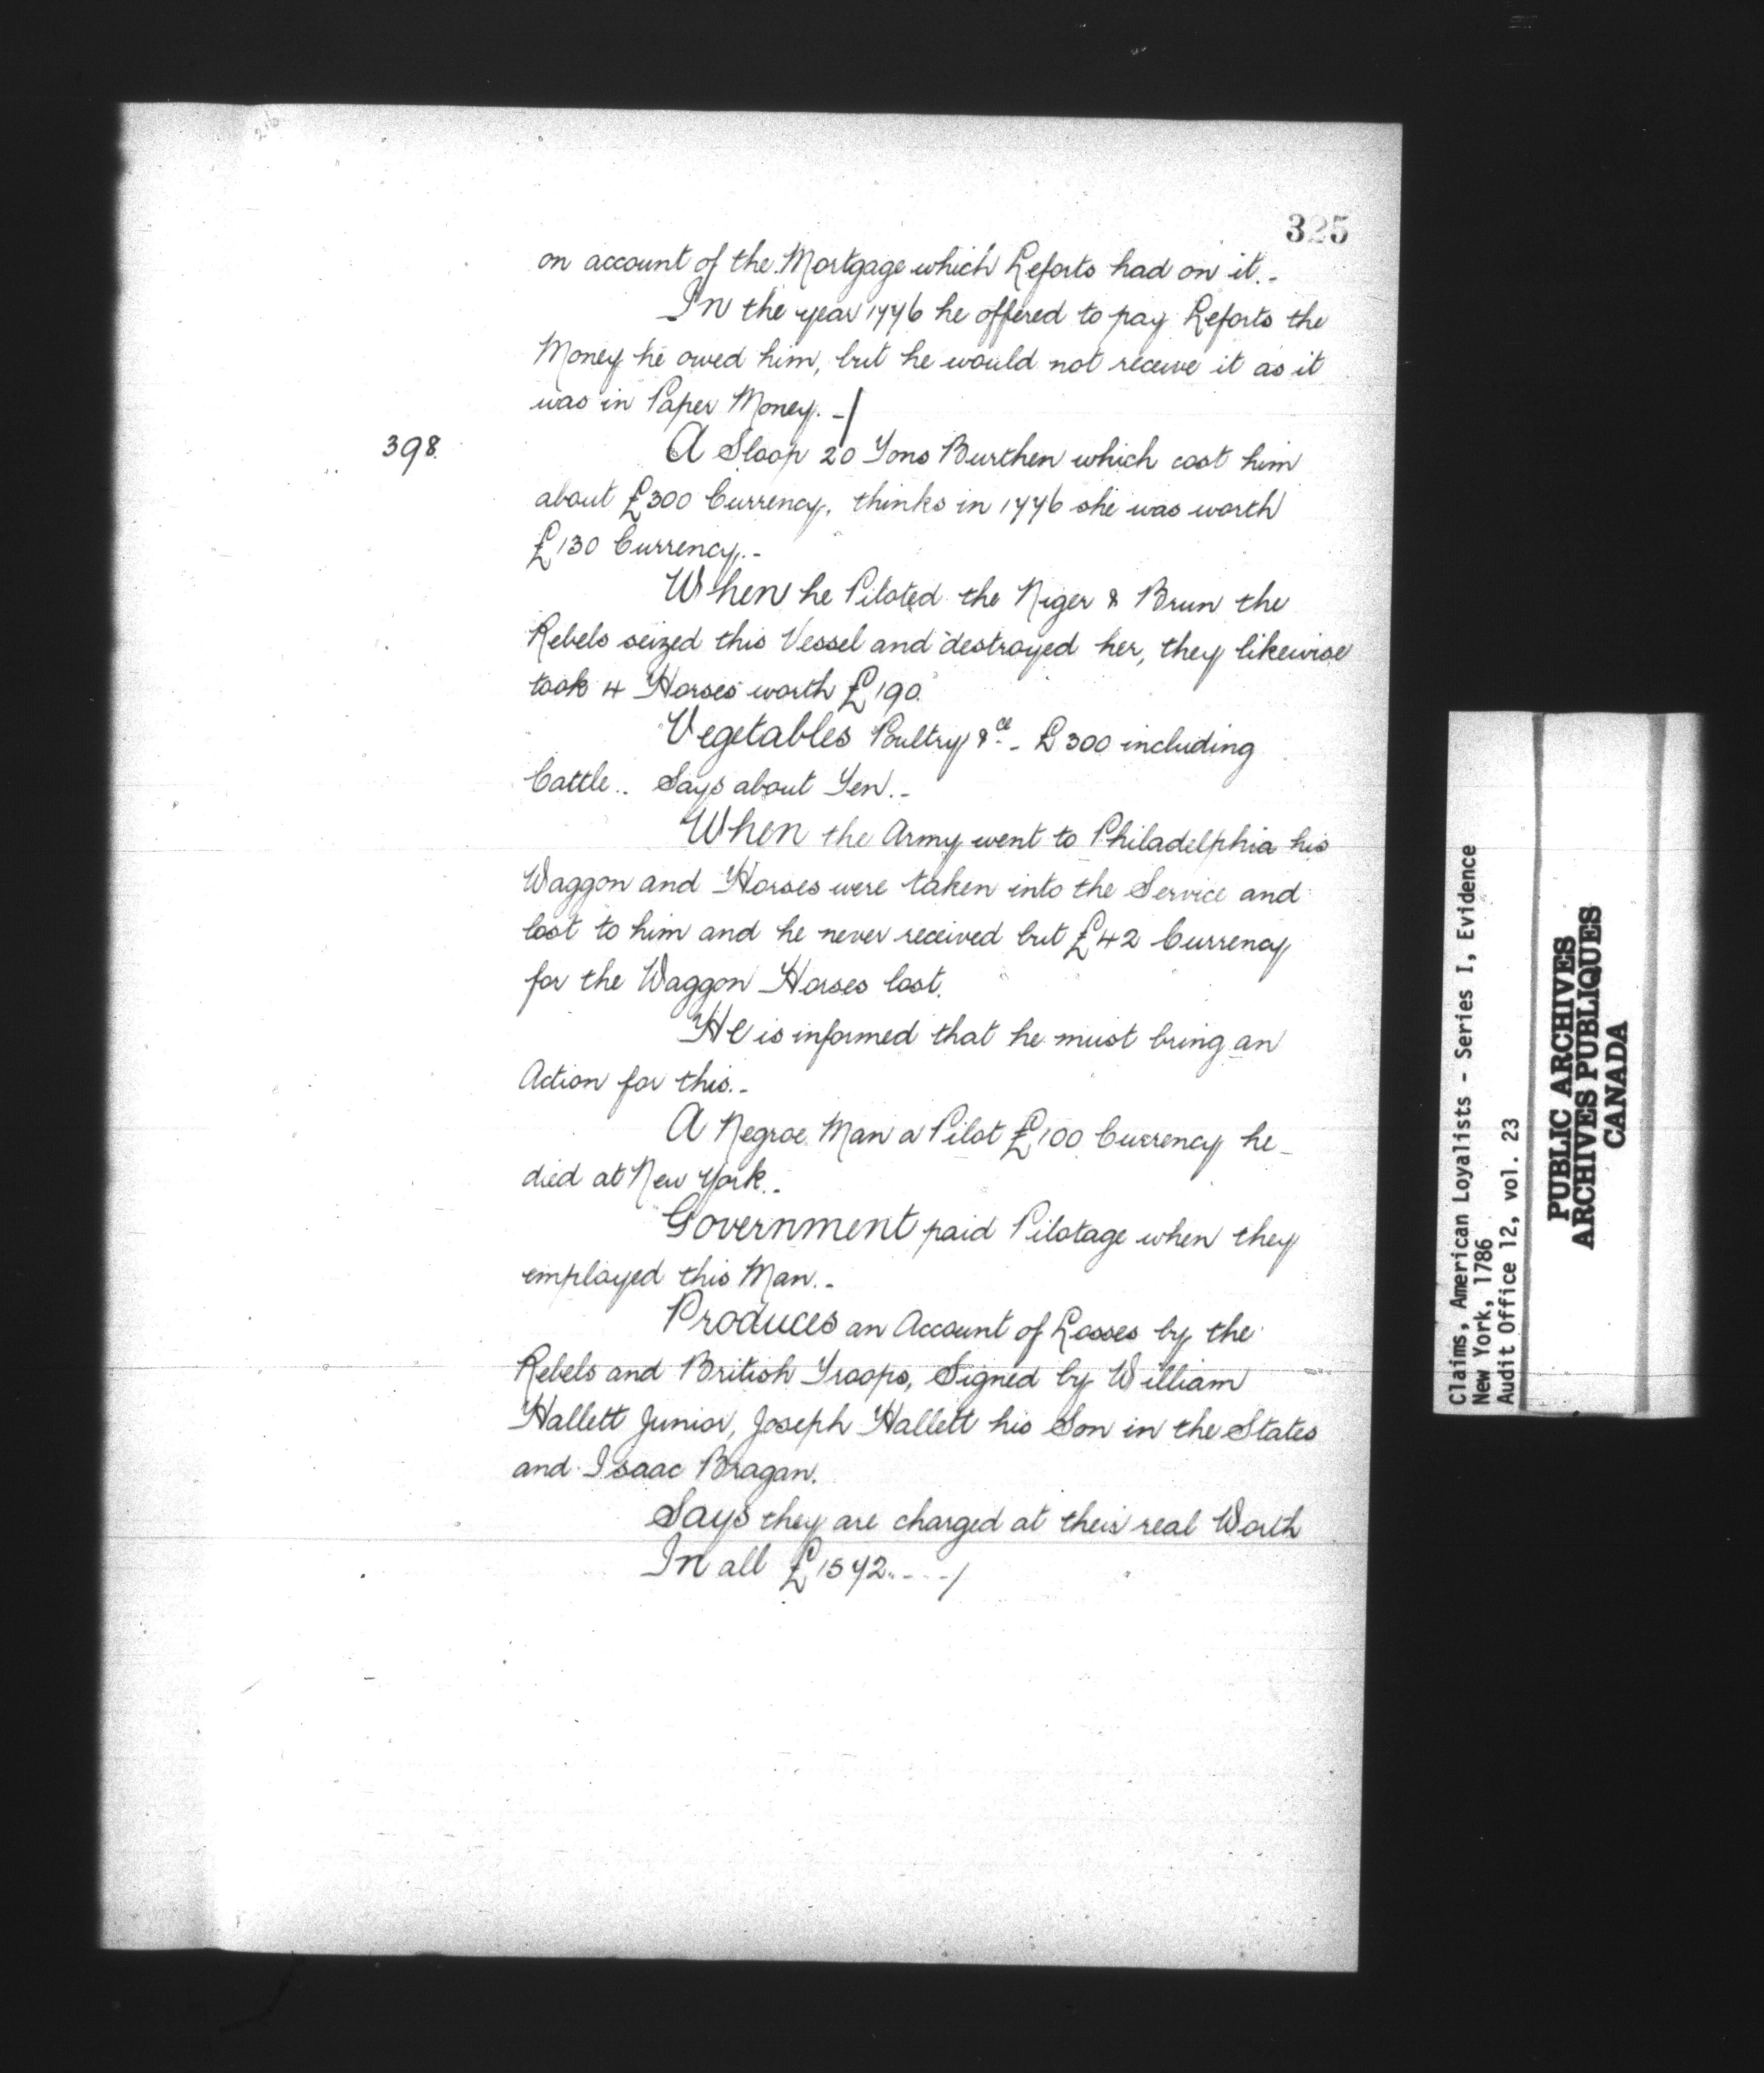 325
on account of the Mortgage which Leforts had on it.-
In the year 1776 he offered to pay Leforts the
Money he owed him, but he would not receive it as it
was in Paper Money. -/
398.
A Sloop 20 Tons Burthen which cost him
about £300 Currency, thinks in 1776 she was worth
£130 Currency.-
When he Piloted the Niger & Brun the
Rebels seized this Vessel and destroyed her, they likewise
took 4 Horses worth £190.
Vegetables Poultry &ca - £300 including
Cattle.. Says about Ten.-
When the Army went to Philadelphia his
Waggon and Horses were taken into the Service and
lost to him and he never received but £42 Currency
for the Waggon Horses lost.
He is informed that he must bring an
Action for this.-
A Negroe Man a Pilot £100 Currency he
died at New York.-
Government paid Pilotage when they
employed this Man.-
Produces an Account of Losses by the
Rebels and British Troops, Signed by William
Hallett Junior, Joseph Hallett his Son in the States
and Isaac Bragan.
Says they are charged at their real Worth
In all £1572..--/
Claims, American Loyalists - Series I, Evidence
New York, 1786
Audit Office 12, vol. 23
PUBLIC ARCHIVES
ARCHIVES PUBLIQUES
CANADA